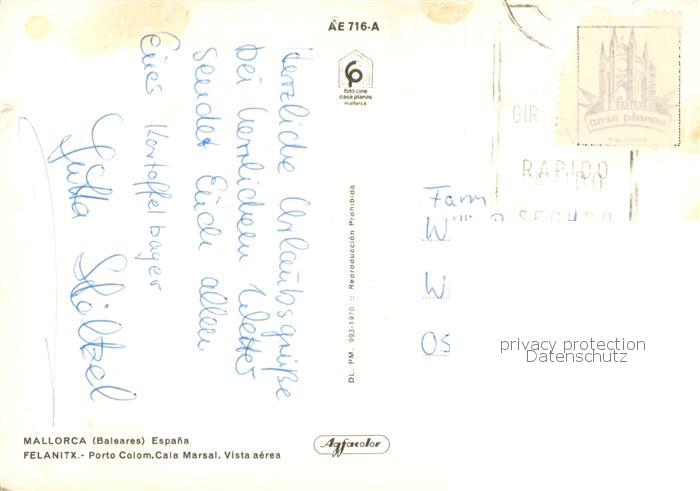 AE 716-A
foto-cine
casa planas
mallorca
foto
casa planas
MALLORCA
GIR
RAPIDO
SEGURO
Herzliche Urlaubsgrüße
bei herrlichem Wetter
sendet Euch allen
Jutta Höltzel
DL. PM. 993-1970 :: Reproducción Prohibida
Fam
W
W
OS
privacy protection
Datenschutz
MALLORCA (Baleares) España
FELANITX.- Porto Colom.Cala Marsal. Vista aérea
Agfacolor